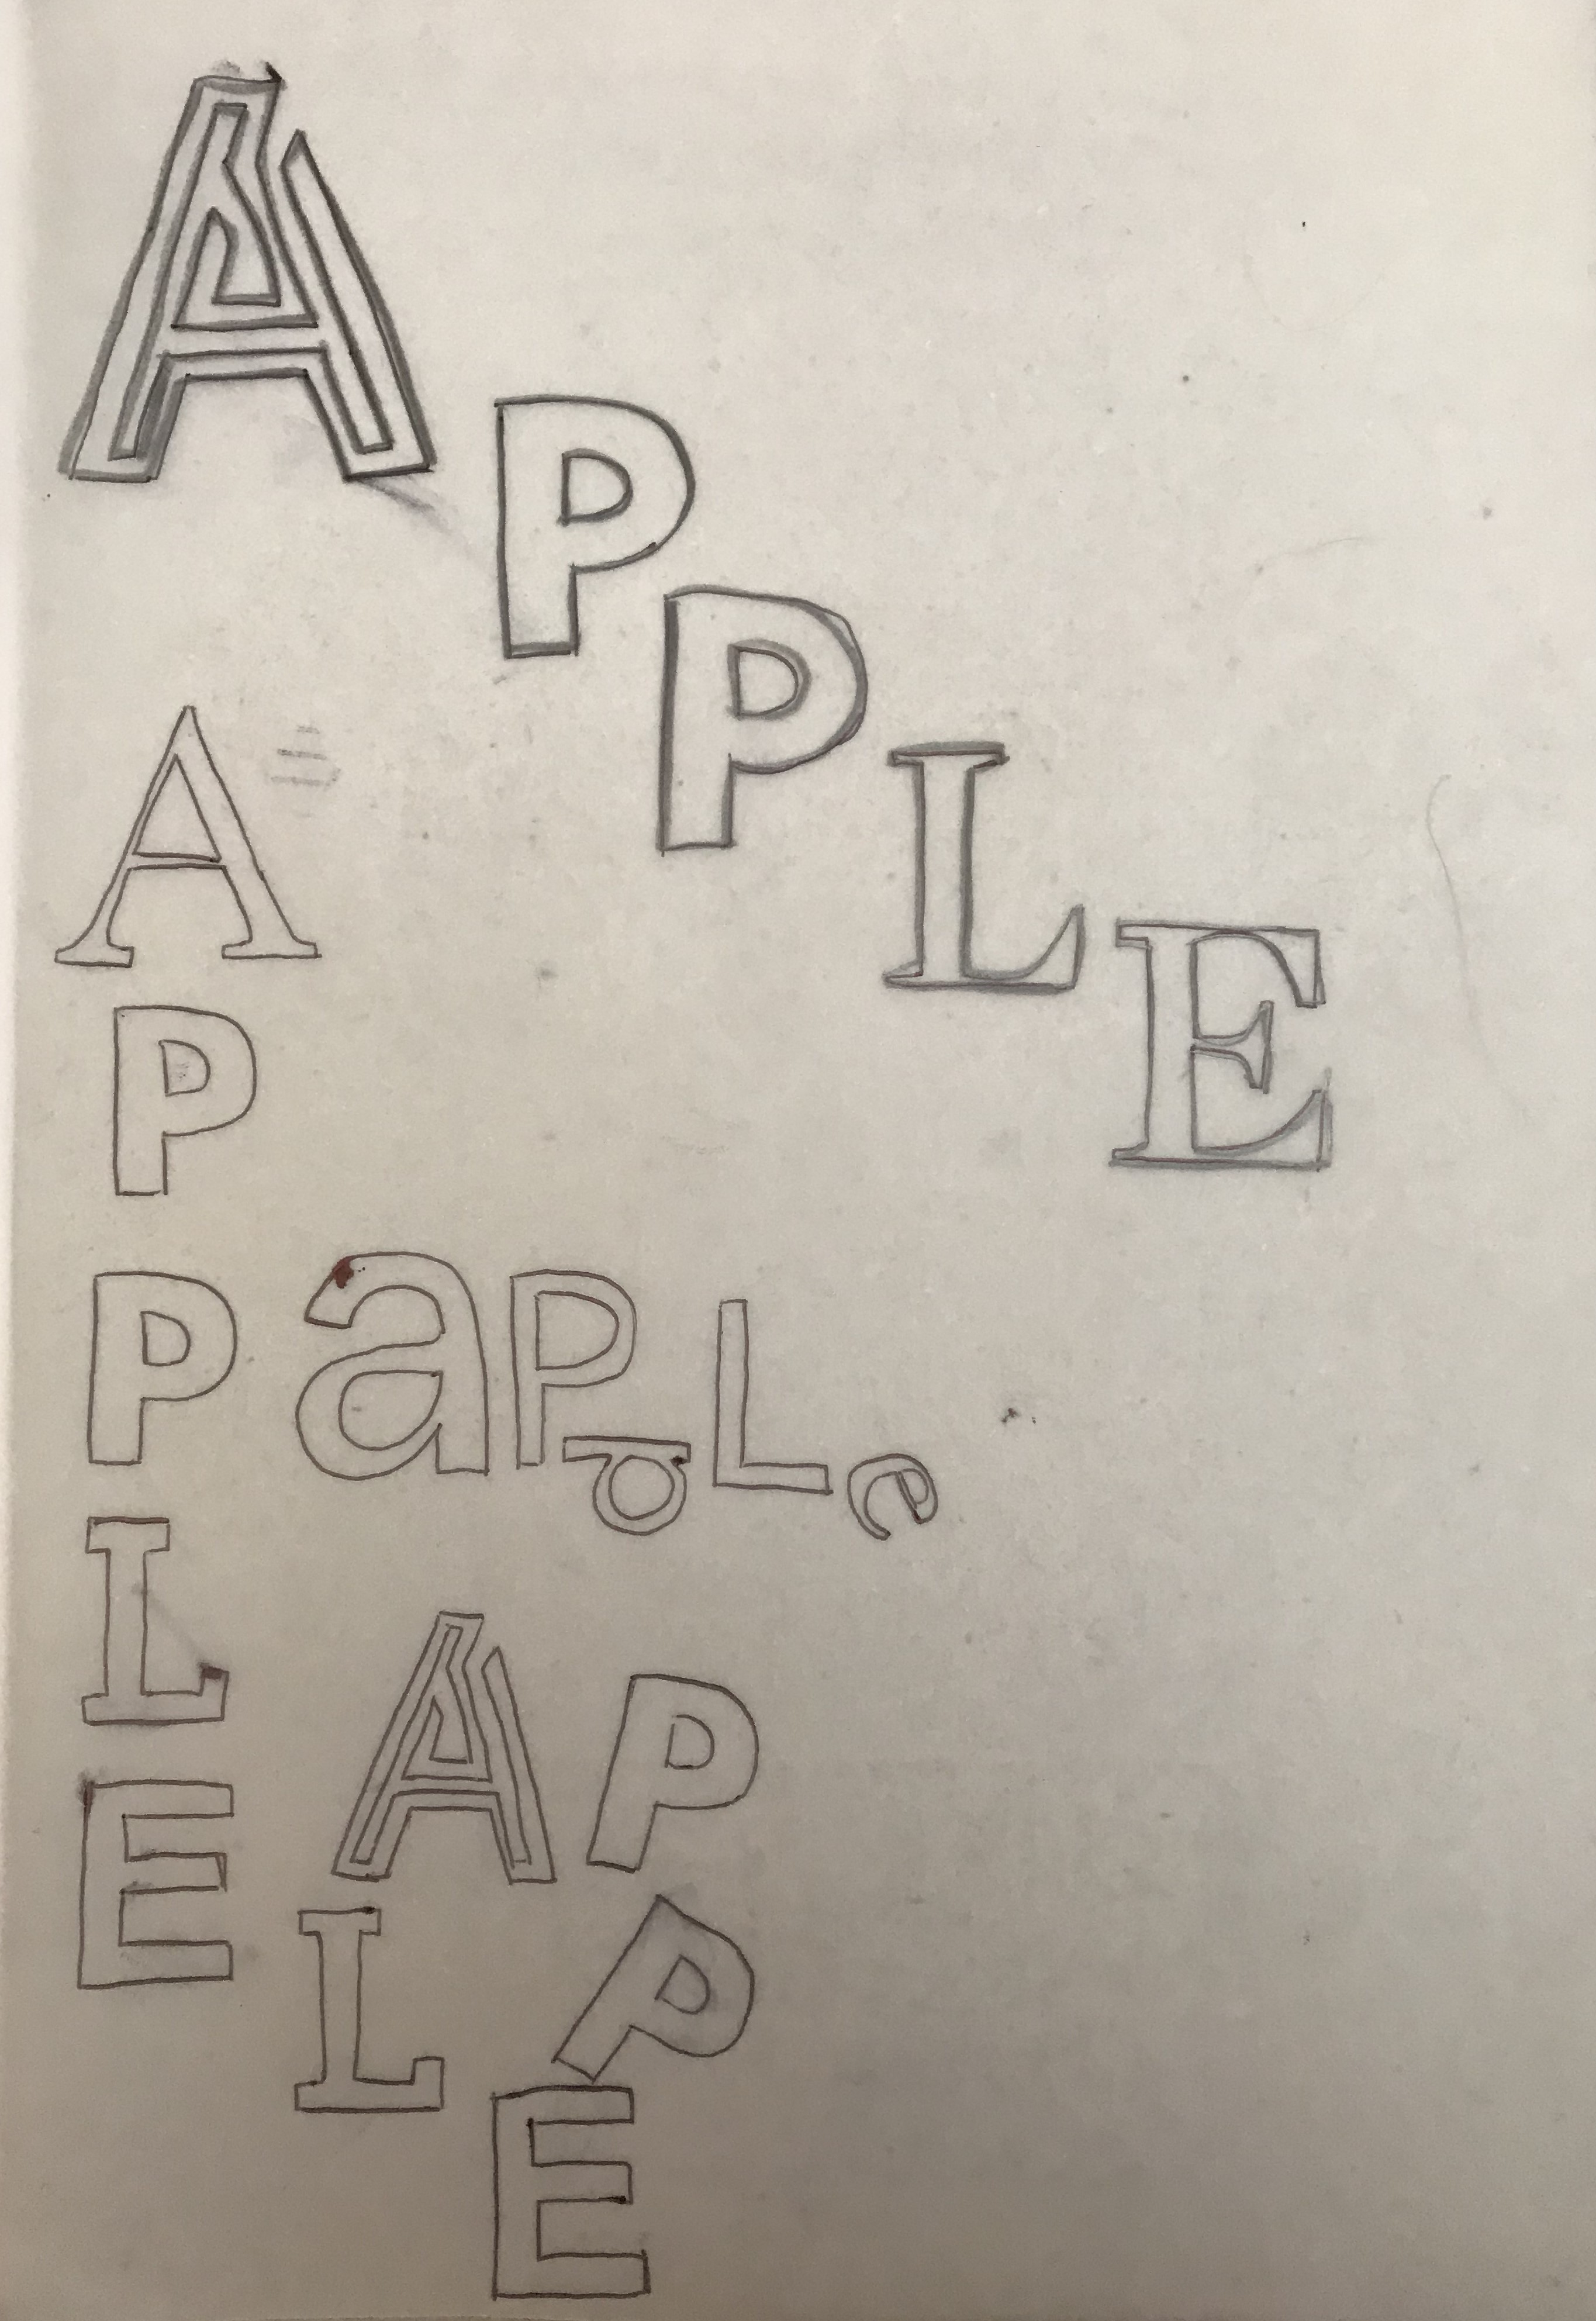 APPLE
APPLE
aPpLe
APPLE